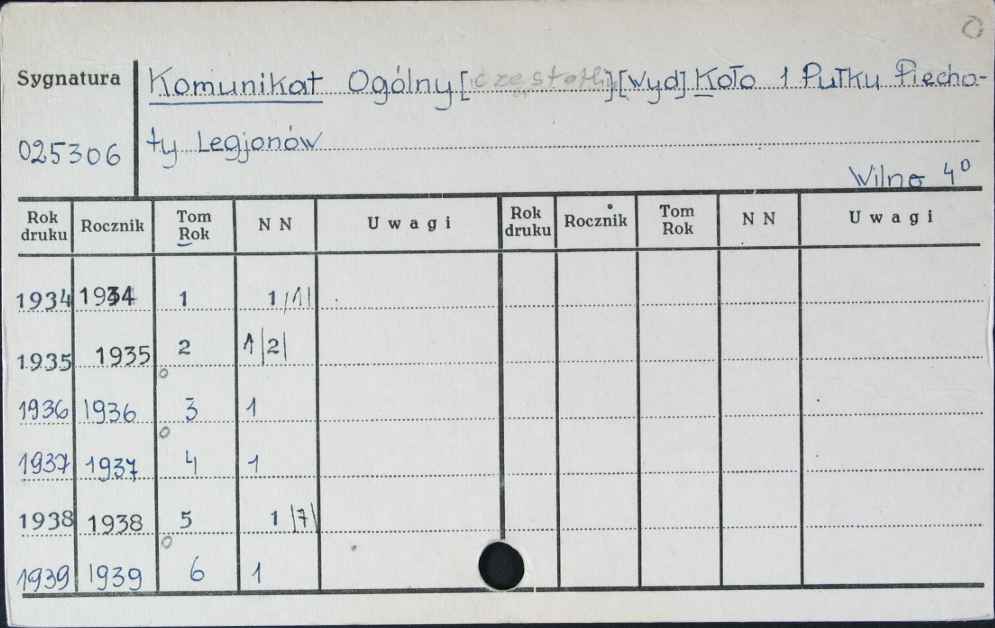 Sygnatura
Komunikat Ogólny [częstotl.] [wyd] Koło 1 Pułku Piecho-
025306
ty Legjonów
Wilno 4°
Rok druku Rocznik Tom Rok N N Uwagi Rok druku Rocznik Tom Rok N N Uwagi
1934 1934 1 1 /1/
1935 1935 2 1 |2|
1936 1936 3 1
1937 1937 4 1
1938 1938 5 1 |7|
1939 1939 6 1